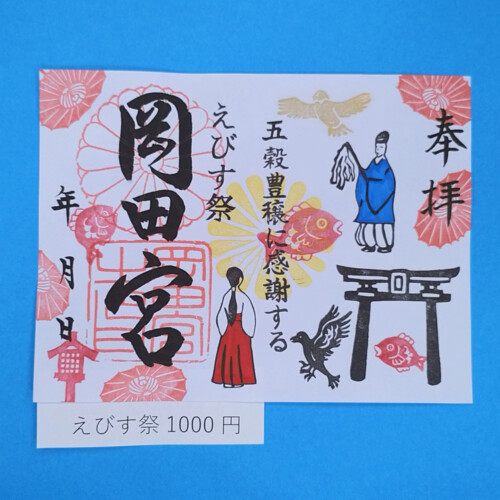 奉拝
五穀豊穣に感謝する
えびす祭
岡田宮
年 月 日
えびす祭 1000 円